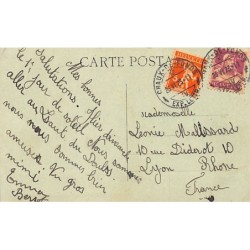 CARTE POSTALE
Mes bonnes
salutations. Hier dimanche
1er jour de soleil nous sommes
allés au Saut du Doubs
nous nous sommes bien
amusés. Un gros
mimi
Emma
Mademoiselle
Léonie
10 rue Diderot 10
Lyon Rhône
France